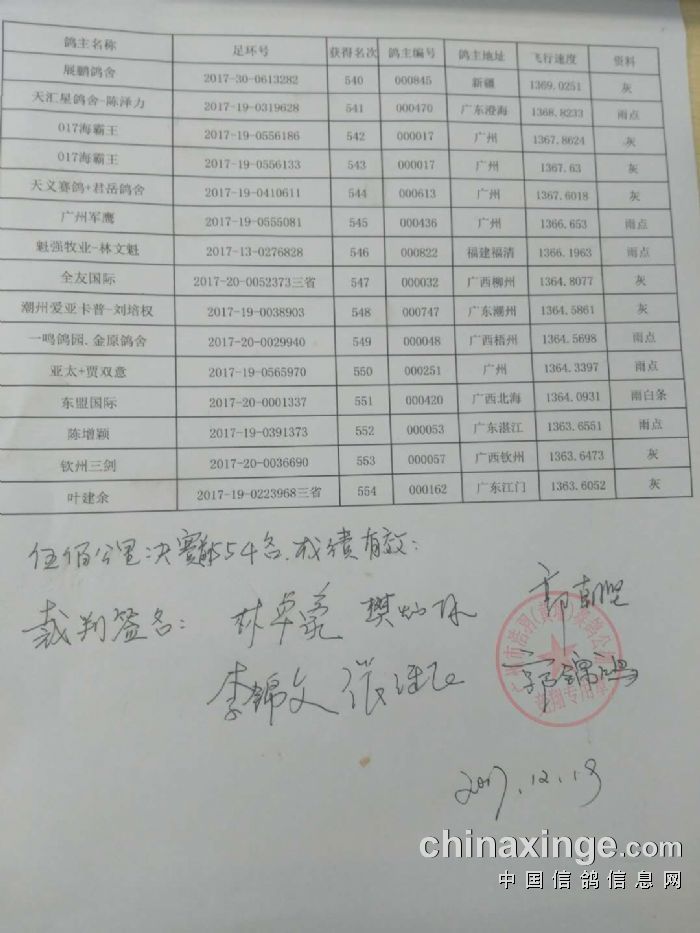 鸽主名称 足环号 获得名次 鸽主编号 鸽主地址 飞行速度 资料
展鹏鸽舍 2017-30-0613282 540 000845 新疆 1369.0251 灰
天汇星鸽舍-陈泽力 2017-19-0319628 541 000470 广东澄海 1368.8233 雨点
017海霸王 2017-19-0556186 542 000017 广州 1367.8624 灰
017海霸王 2017-19-0556133 543 000017 广州 1367.63 灰
天义赛鸽+君岳鸽舍 2017-19-0410611 544 000613 广州 1367.6018 灰
广州军鹰 2017-19-0555081 545 000436 广州 1366.653 雨点
魁强牧业-林文魁 2017-13-0276828 546 000822 福建福清 1366.1963 雨点
全友国际 2017-20-0052373三省 547 000032 广西柳州 1364.8077 灰
潮州爱亚卡普-刘培权 2017-19-0038903 548 000747 广东潮州 1364.5861 灰
一鸣鸽园.金原鸽舍 2017-20-0029940 549 000048 广西梧州 1364.5698 雨点
亚太+贾双意 2017-19-0565970 550 000251 广州 1364.3397 雨点
东盟国际 2017-20-0001337 551 000420 广西北海 1364.0931 雨白条
陈增颖 2017-19-0391373 552 000053 广东湛江 1363.6551 雨点
钦州三剑 2017-20-0036690 553 000057 广西钦州 1363.6473 灰
叶建余 2017-19-0223968三省 554 000162 广东江门 1363.6052 灰
伍佰公里决赛554名.成绩有效:
裁判签名:
李锦文
郭锦鸿
2017.12.19
chinaxinge.com
中国信鸽信息网